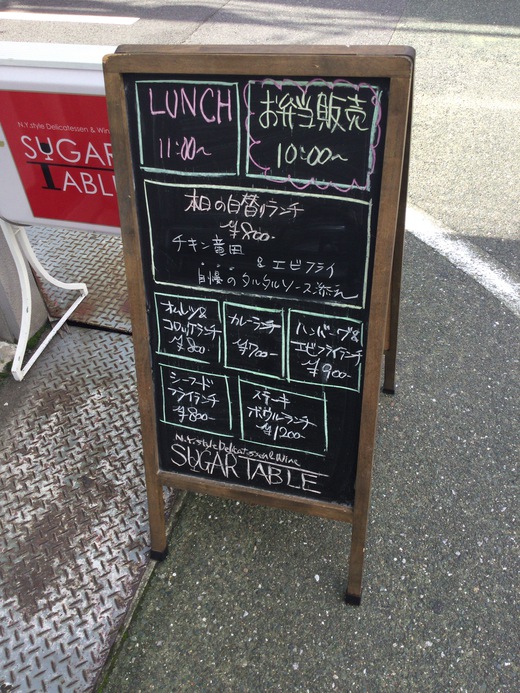 N.Y.style Delicatessen & Win
SUGAR
TABLE
LUNCH
11:00~
お弁当販売
10:00~
本日の日替りランチ
¥800.
チキン竜田
& エビフライ
自慢のタルタルソース添え
オムレツ&
コロッケランチ
¥800
カレーランチ
¥700
ハンバーグ&
エビフライランチ
¥900
シーフード
フライランチ
¥800
ステーキ
ボウルランチ
¥1200
N.Y.style Delicatessen&Wine
SUGAR TABLE